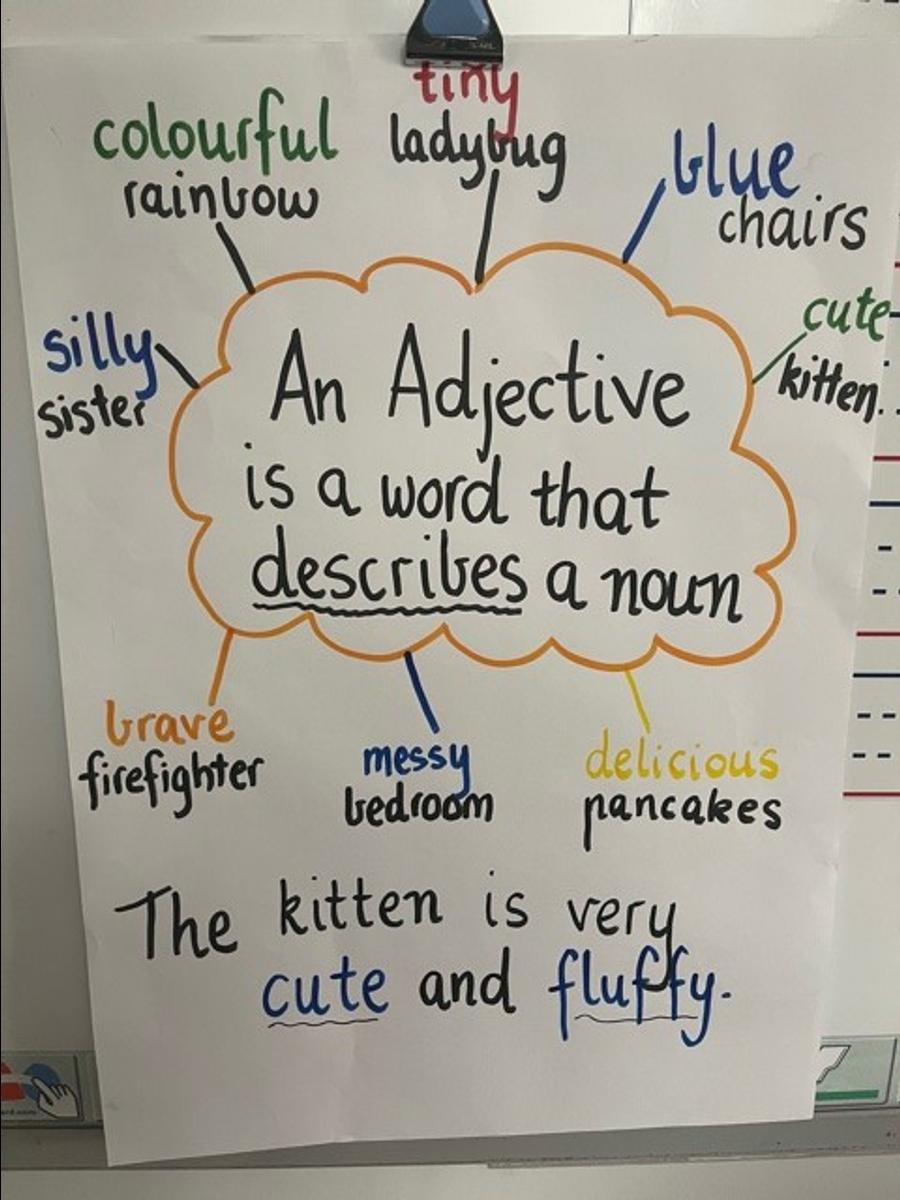 tiny
ladybug
colourful
rainbow
blue
chairs
silly
sister
cute
kitten.
An Adjective
is a word that
describes a noun
brave
firefighter
messy
bedroom
delicious
pancakes
The kitten is very
cute and fluffy.